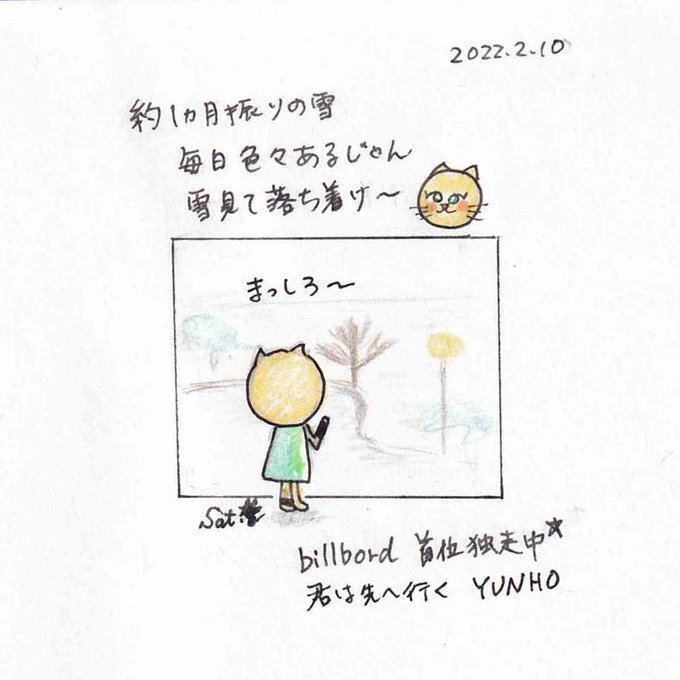 2022.2.10
約1カ月振りの雪
毎日色々あるじゃん
雪見て落ち着け〜
まっしろ〜
billbord 首位独走中☆
君は先へ行く YUNHO